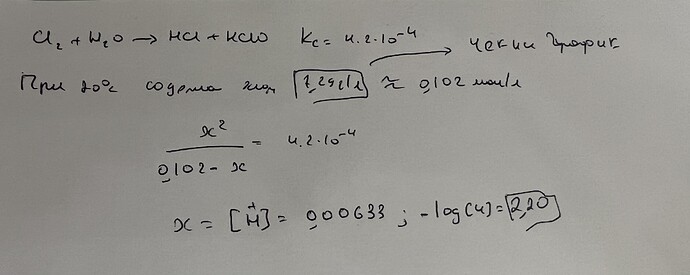 Cl₂ + H₂O → HCl + HClO Kc = 4.2·10⁻⁴ → чекни график
При 20°c содерж 7,29г/л ≈ 0,102 моль/л
x² / 0,102 - x = 4.2·10⁻⁴
x = [H⁺] = 0,00633 ; -log(4) = 2,20